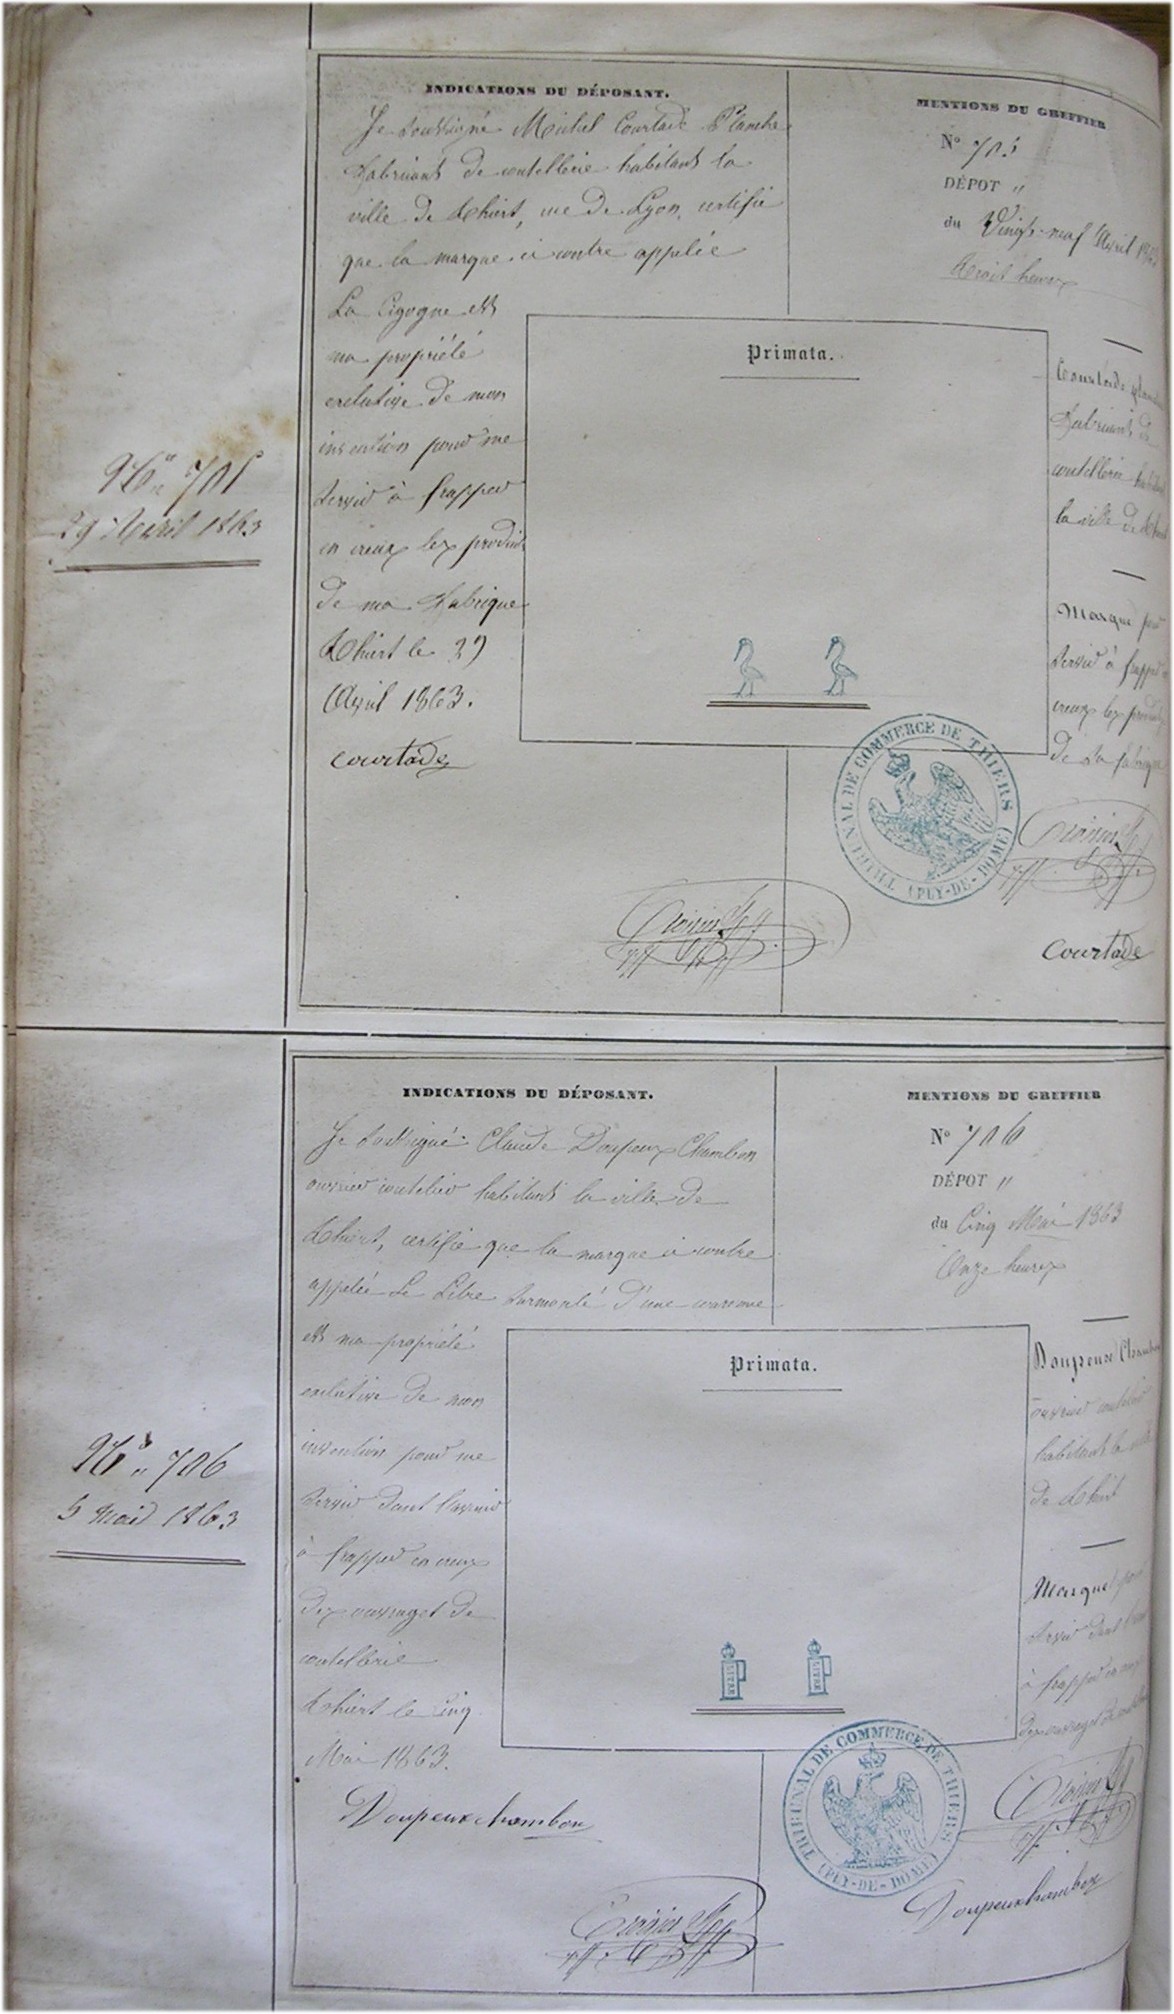 INDICATIONS DU DÉPOSANT.
Je soussigné Michel Courtade Planche
fabricant de coutellerie habitant la
ville de Thiers, rue de Lyon, certifie
que la marque ci contre appelée
La Cigogne est
ma propriété
exclusive de mon
invention pour me
servir à frapper
en creux les produits
de ma fabrique
Thiers le 29
Avril 1863.
Courtade
MENTIONS DU GREFFIER
N° 705
DÉPOT "
du Vingt-neuf Avril 1863
trois heures
Primata.
Courtade Planche
fabricant de
coutellerie
la ville de
Marque pour
servir à frapper
creux les produits
de sa fabrique
TRIBUNAL DE COMMERCE DE THIERS
(PUY-DE-DOME)
Courtade
N° 705
29 Avril 1863
INDICATIONS DU DÉPOSANT.
Je soussigné Claude Doupeux Chambon
ouvrier coutelier habitant la ville de
Thiers, certifie que la marque ci contre
appelée Le Litre surmonté d'une couronne
est ma propriété
exclusive de mon
invention pour me
servir dans l'avenir
à frapper en creux
des ouvrages de
coutellerie
Thiers le Cinq
Mai 1863.
Doupeux chambon
MENTIONS DU GREFFIER
N° 706
DÉPOT "
du Cinq Mai 1863
Onze heures
Primata.
LITRE LITRE
Doupeux Chambon
ouvrier coutelier
habitant la ville
de Thiers
Marque pour
servir dans
à frapper en creux
des ouvrages de
TRIBUNAL DE COMMERCE DE THIERS
(PUY-DE-DOME)
Doupeux chambon
N° 706
5 Mai 1863